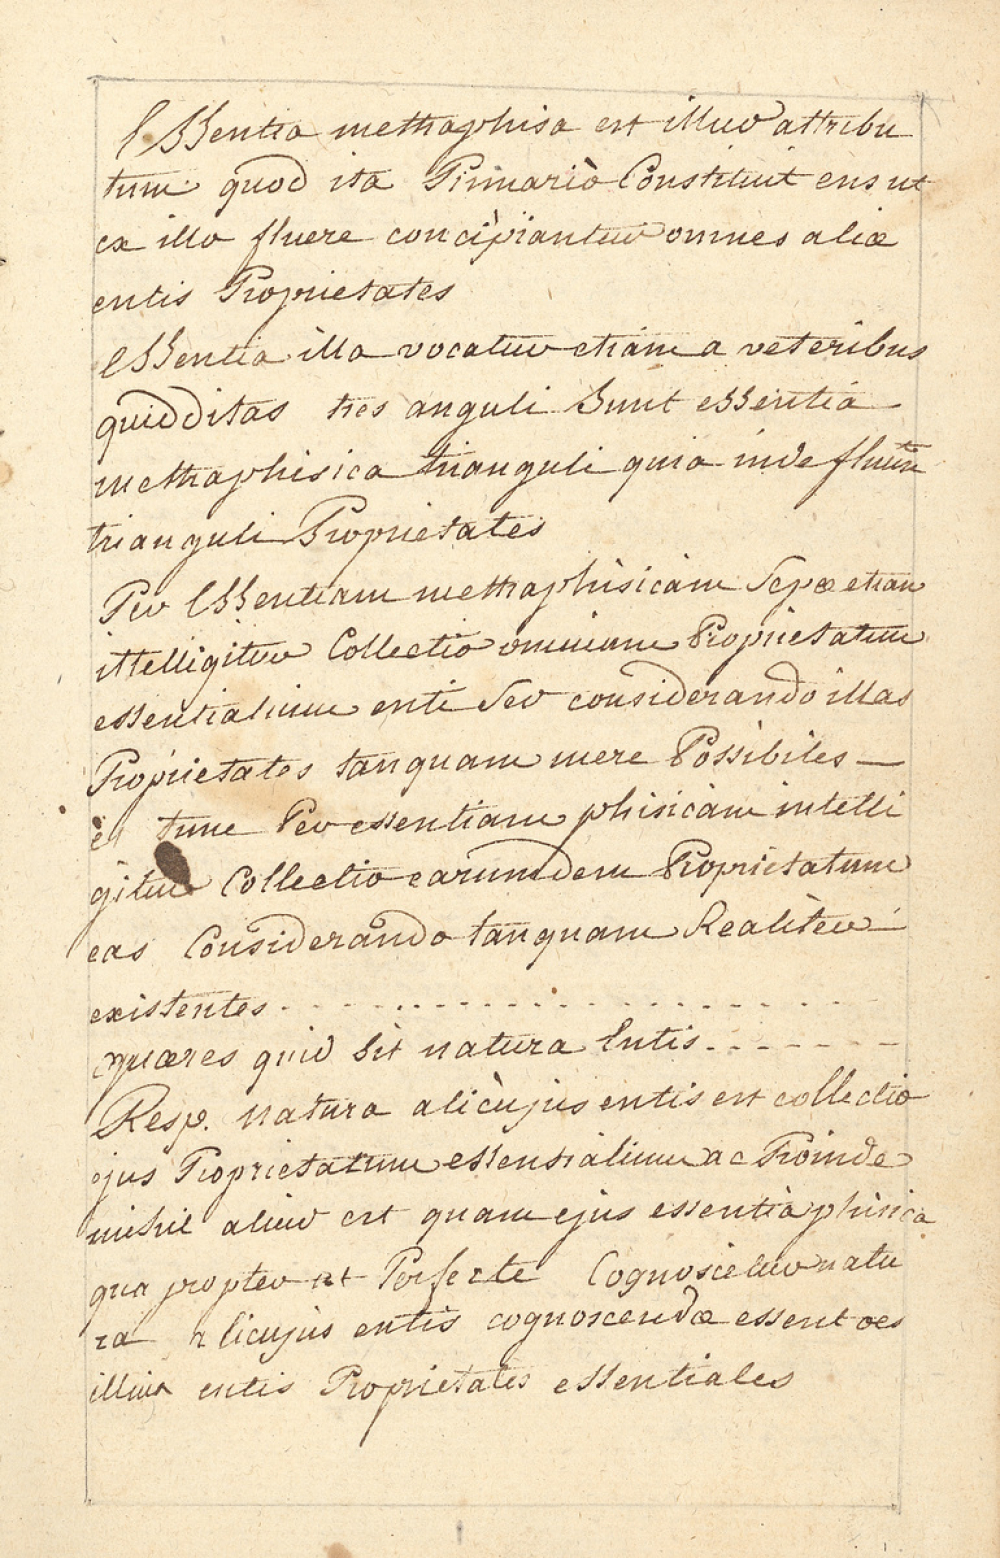 Essentia methaphisa est illud attribu
tum quod ita Primariò Constituit ens ut
ex illo fluere concipiantur omnes aliæ
entis Proprietates
Essentia illa vocatur etiam a veteribus
quidditas tres anguli Sunt essentia
methaphisica trianguli quia inde fluunt
trianguli Proprietates
Per Essentiam methaphisicam Sepæ etiam
ittelligitur Collectio omnium Proprietatum
essentialium enti Seu considerando illas
Proprietates tanquam mere Possibiles —
et tunc Per essentiam phisicam intelli
gitur Collectio earumdem Proprietatum
eas Considerando tanquam Realiter
existentes - - - - - - - - - - - - - - - -
quæres quid Sit natura Entis - - - - - - -
Resp. natura alicùjus entis est collectio
ejus Proprietatum essensialium ac Proinde
nihil aliud est quam ejus essentia phisica
qua propter ut Perfecte Cognoscetur natu
ra alicujus entis cognoscendæ essent oes
illius entis Proprietates essentiales